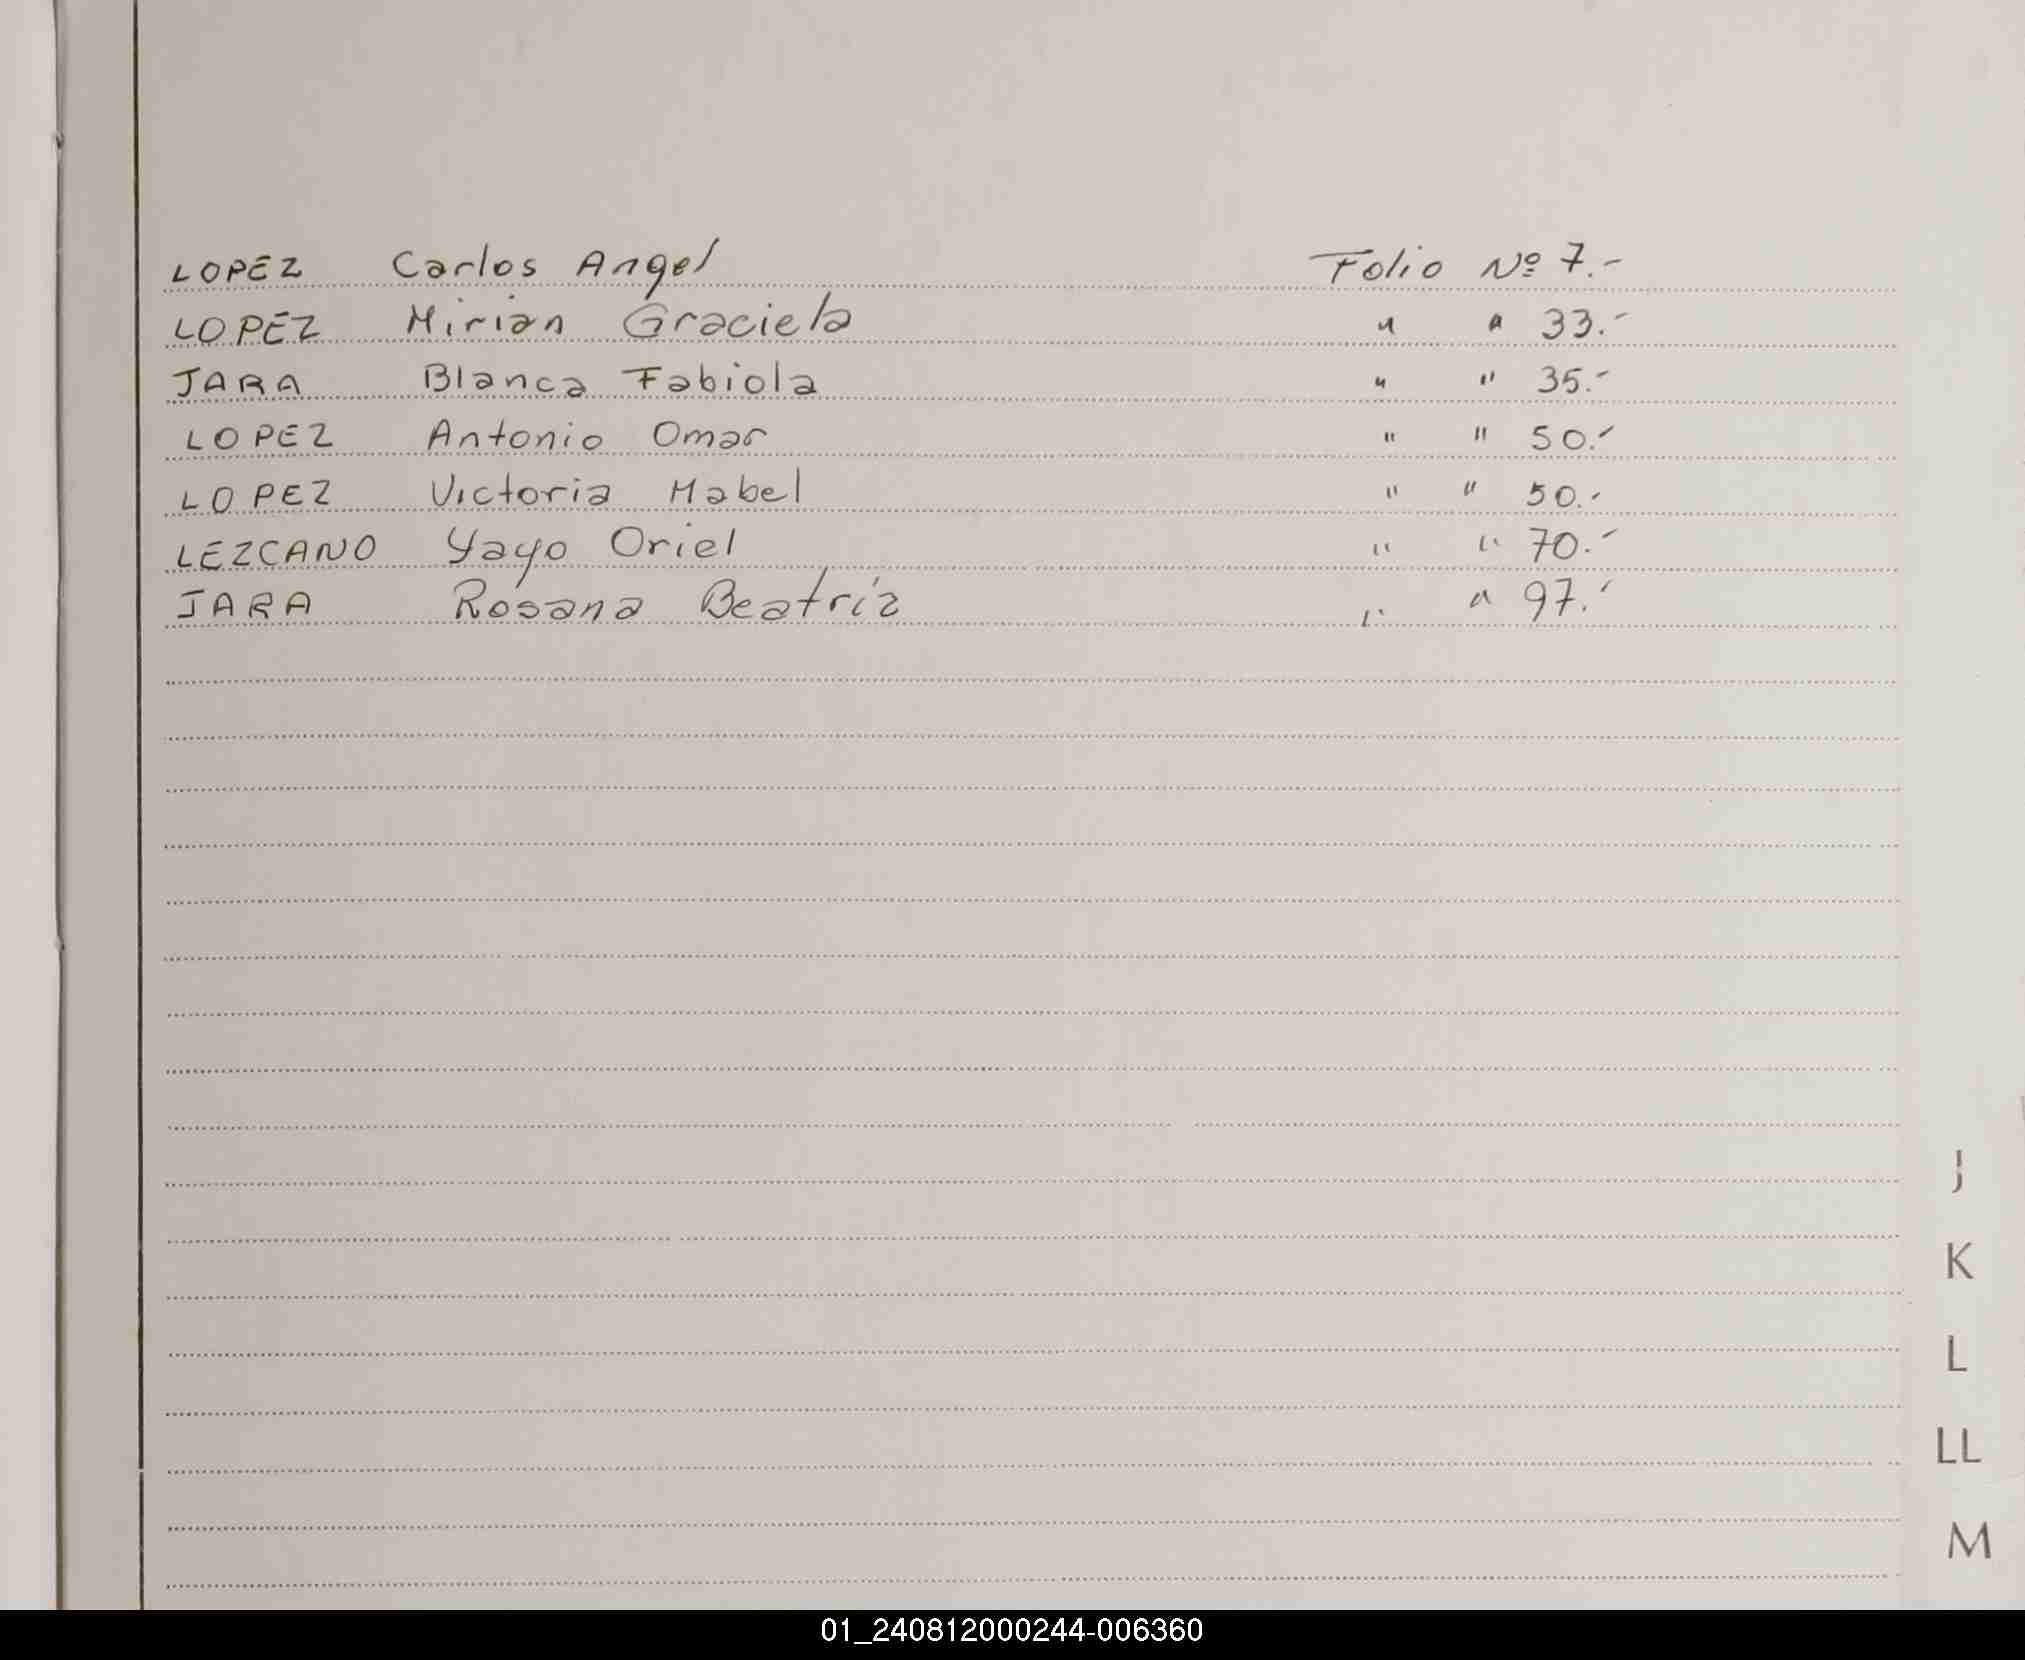 LOPEZ Carlos Angel Folio Nº 7.-
LOPEZ Mirian Graciela " " 33.-
JARA Blanca Fabiola " " 35.-
LOPEZ Antonio Omar " " 50.-
LOPEZ Victoria Mabel " " 50.-
LEZCANO Yayo Oriel " " 70.-
JARA Rosana Beatríz " " 97.-
J
K
L
LL
M
01_240812000244-006360